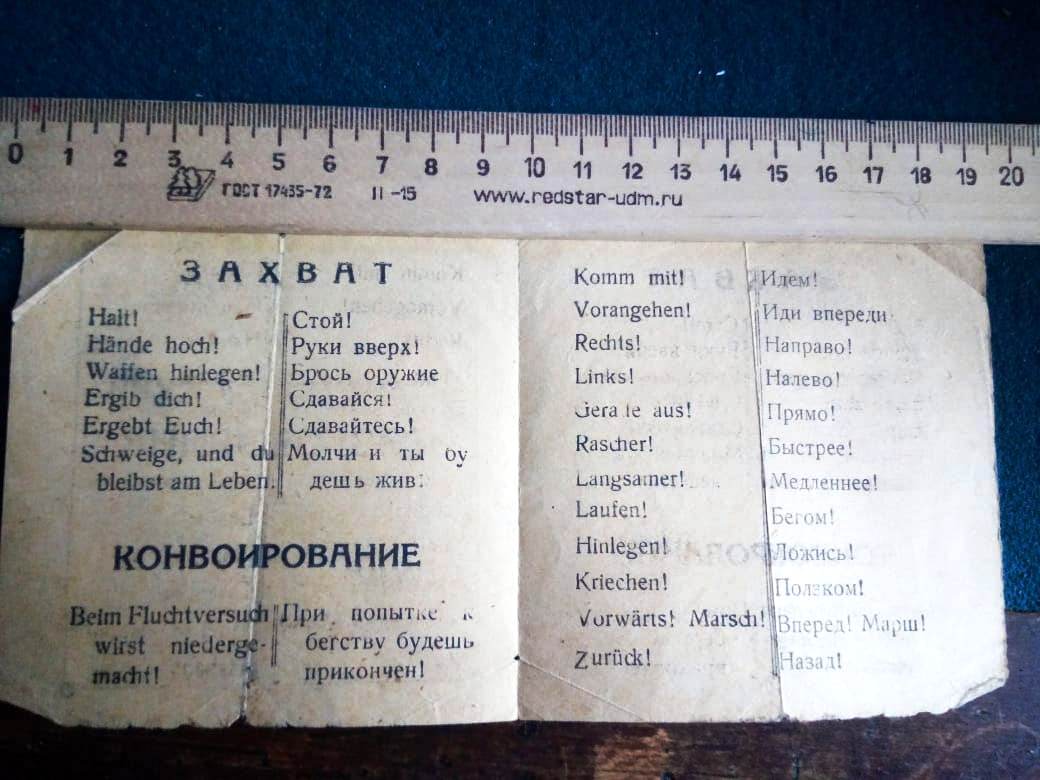 0 1 2 3 4 5 6 7 8 9 10 11 12 13 14 15 16 17 18 19 20
ГОСТ 17435-72 II -15 www.redstar-udm.ru
ЗАХВАТ
Halt! Стой!
Hände hoch! Руки вверх!
Waffen hinlegen! Брось оружие
Ergib dich! Сдавайся!
Ergebt Euch! Сдавайтесь!
Schweige, und du Молчи и ты бу
bleibst am Leben. дешь жив!
КОНВОИРОВАНИЕ
Beim Fluchtversuch При попытке к
wirst niederge- бегству будешь
macht! прикончен!
Komm mit! Идем!
Vorangehen! Иди впереди
Rechts! Направо!
Links! Налево!
Gerade aus! Прямо!
Rascher! Быстрее!
Langsamer! Медленнее!
Laufen! Бегом!
Hinlegen! Ложись!
Kriechen! Ползком!
Vorwärts! Marsch! Вперед! Марш!
Zurück! Назад!